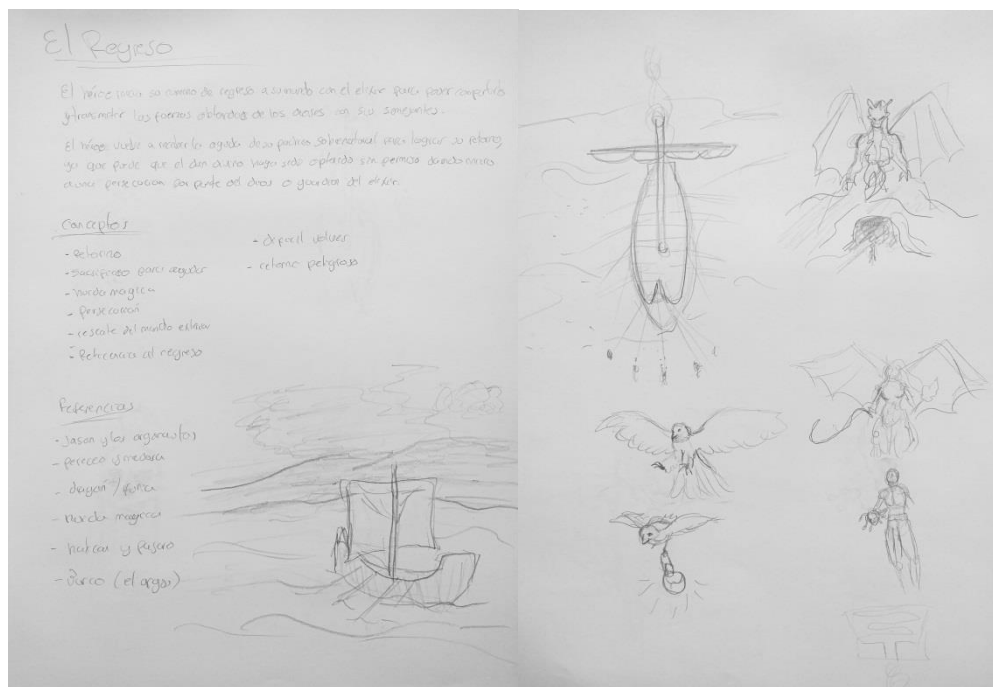 El Regreso
El héroe inicia su camino de regreso a su mundo con el elixir para poder compartirlo
y transmitir las fuerzas obtenidas de los dioses con sus semejantes.
El héroe vuelve a recibir la ayuda de su padrino sobrenatural para lograr su retorno
ya que puede que el don divino haya sido optenido sin permiso dando inicio
a una persecucion por parte del dios o guardian del elixir.
Conceptos
- Retorno
- Sacrificio para ayudar
- huida magica
- Persecucion
- rescate del mundo exterior
- Reticencia al regreso
- dificil volver
- retorno peligroso
Referencias
- Jason y los argonautas
- perseo y medusa
- dragon /
- huida magica
- y pajaro
- Barco (el argos)